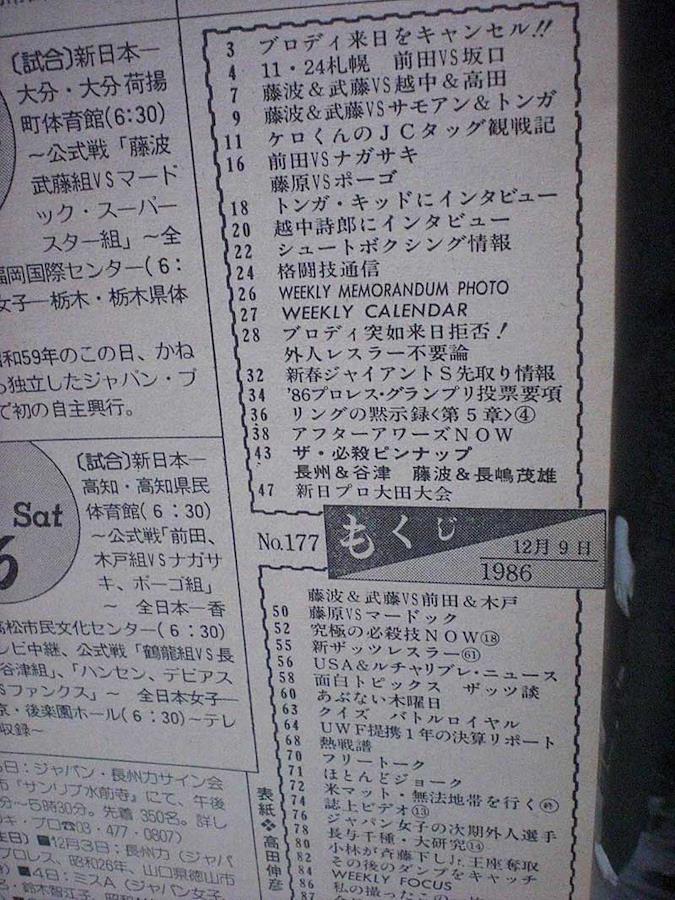 〔試合〕新日本―
大分・大分荷揚
町体育館(6:30)
～公式戦「藤波
武藤組VSマード
ック・スーパー
スター組」～全
福岡国際センター(6:
女子―栃木・栃木県体
昭和59年のこの日、かね
ら独立したジャパン・プ
で初の自主興行。
Sat
6
〔試合〕新日本―
高知・高知県民
体育館(6:30)
～公式戦「前田、
木戸組VSナガサ
キ、ポーゴ組」
～ 全日本―香
高松市民文化センター(6:30)
レビ中継、公式戦「鶴龍組VS長
谷津組」、「ハンセン、デビアス
VSファンクス」～ 全日本女子―
京・後楽園ホール(6:30)～テレ
収録～
日:ジャパン・長州力サイン会
市「サンリブ水前寺」にて、午後
分～5時30分。先着350名。詳し
キ・プロ☎03・477・0807)
生日)■12月3日:長州力(ジャパ
プロレス、昭和26年、山口県徳山市
■4日:ミスA(ジャパン女子、
3 ブロディ来日をキャンセル!!
4 11・24札幌 前田VS坂口
7 藤波&武藤VS越中&高田
9 藤波&武藤VSサモアン&トンガ
11 ケロくんのJCタッグ観戦記
16 前田VSナガサキ
藤原VSポーゴ
18 トンガ・キッドにインタビュー
20 越中詩郎にインタビュー
22 シュートボクシング情報
24 格闘技通信
26 WEEKLY MEMORANDUM PHOTO
27 WEEKLY CALENDAR
28 ブロディ突如来日拒否!
外人レスラー不要論
32 新春ジャイアントS先取り情報
34 '86プロレス・グランプリ投票要項
36 リングの黙示録<第5章>④
38 アフターアワーズNOW
43 ザ・必殺ピンナップ
長州&谷津 藤波&長嶋茂雄
47 新日プロ大田大会
No.177
もくじ
12月9日
1986
藤波&武藤VS前田&木戸
50 藤原VSマードック
52 究極の必殺技NOW⑱
55 新ザッツレスラー㉛
56 USA&ルチャリブレ・ニュース
58 面白トピックス ザッツ談
60 あぶない木曜日
63 クイズ バトルロイヤル
64 UWF提携1年の決算リポート
68 熱戦譜
70 フリートーク
71 ほとんどジョーク
72 米マット・無法地帯を行く㊡
74 誌上ビデオ⑬
76 ジャパン女子の次期外人選手
78 長与千種・大研究⑭
80 小林が斉藤下しJr.王座奪取
82 その後のダンプをキャッチ
84 WEEKLY FOCUS
86 私の撮ったこの
87
表紙❖高田伸彦